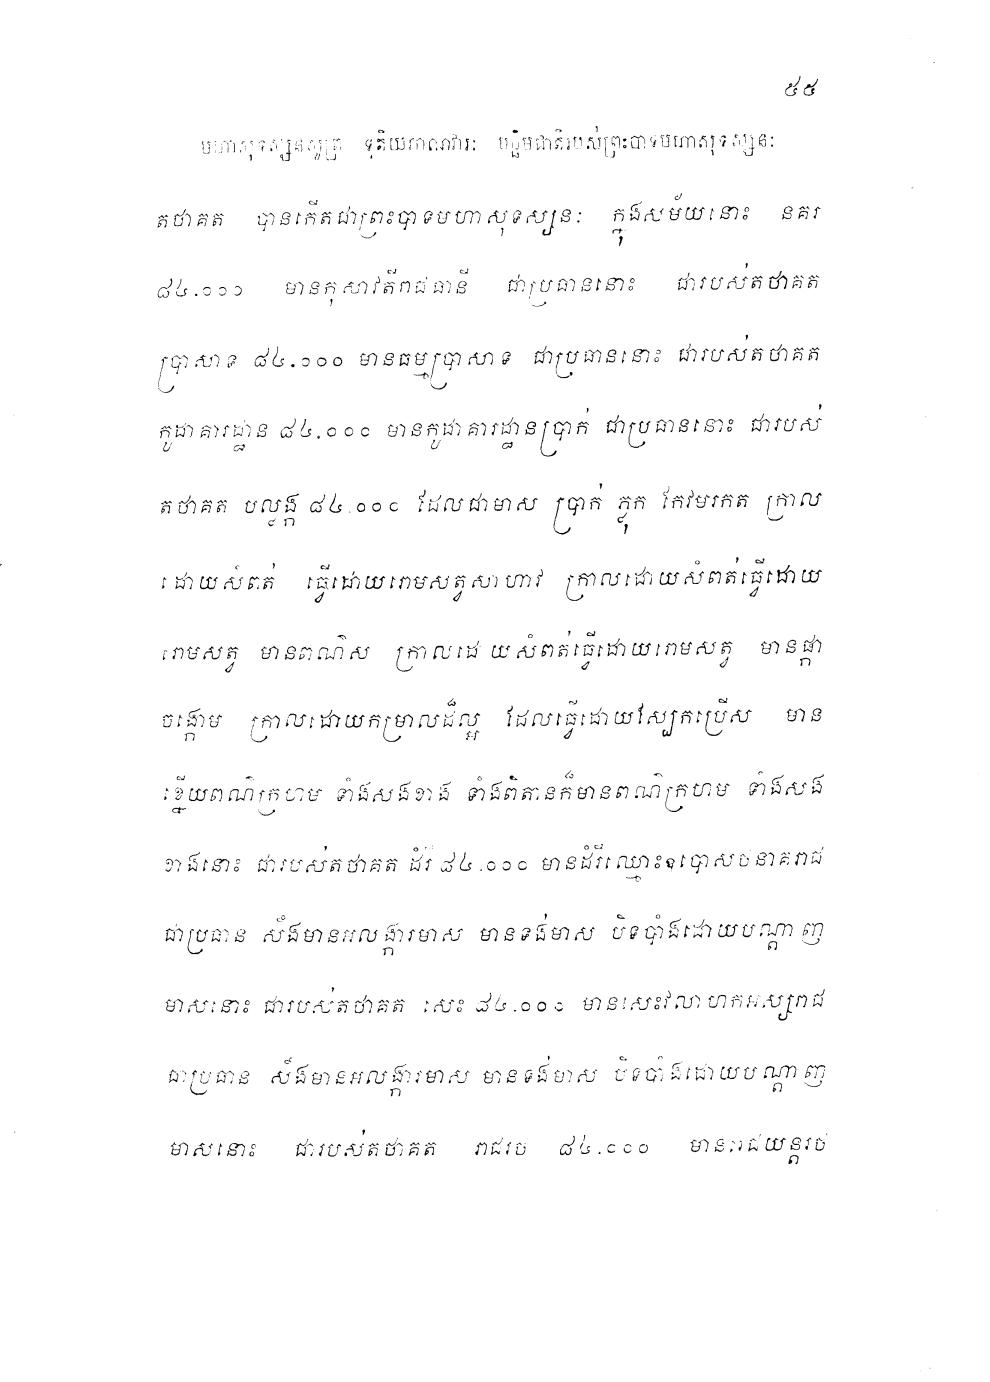 ៥៥
មហាសុទស្សនសូត្រ ទុតិយភាណវារៈ បច្ឆិមជាតិរបស់ព្រះបាទមហាសុទស្សនៈ
តថាគត បានកើតជាព្រះបាទមហាសុទស្សនៈ ក្នុងសម័យនោះ នគរ
៨៤.០០០ មានកុសាវតីរាជធានី ជាប្រធាននោះ ជារបស់តថាគត
ប្រាសាទ ៨៤.០០០ មានធម្មប្រាសាទ ជាប្រធាននោះ ជារបស់តថាគត
កូដាគារដ្ឋាន ៨៤.០០០ មានកូដាគារដ្ឋានប្រាក់ ជាប្រធាននោះ ជារបស់
តថាគត បល្ល័ង្ក ៨៤.០០០ ដែលជាមាស ប្រាក់ ភ្លុក កែវមរកត ក្រាល
ដោយសំពត់ ធ្វើដោយរោមសត្វសាហាវ ក្រាលដោយសំពត់ធ្វើដោយ
រោមសត្វ មានពណ៌ស ក្រាលដោយសំពត់ធ្វើដោយរោមសត្វ មានផ្កា
ចង្កោម ក្រាលដោយកម្រាលដ៏ល្អ ដែលធ្វើដោយស្បែកប្រើស មាន
ខ្នើយពណ៌ក្រហម ទាំងសងខាង ទាំងពិតានក៏មានពណ៌ក្រហម ទាំងសង
ខាងនោះ ជារបស់តថាគត ដំរី ៨៤.០០០ មានដំរីឈ្មោះឧបោសថនាគរាជ
ជាប្រធាន សឹងមានអលង្ការមាស មានទង់មាស បិទបាំងដោយបណ្តាញ
មាសនោះ ជារបស់តថាគត សេះ ៨៤.០០០ មានសេះវលាហកអស្សរាជ
ជាប្រធាន សឹងមានអលង្ការមាស មានទង់មាស បិទបាំងដោយបណ្តាញ
មាសនោះ ជារបស់តថាគត រាជរថ ៨៤.០០០ មានវេជយន្តរថ